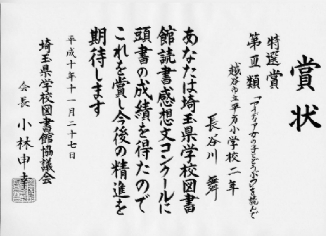 賞状
特選賞
第Ⅱ類
越谷市立平方小学校二年
長谷川 舞
あなたは埼玉県学校図書
館読書感想文コンクールに
頭書の成績を得たので
これを賞し今後の精進を
期待します
平成十年十一月二十七日
埼玉県学校図書館協議会
会長 小林申幸